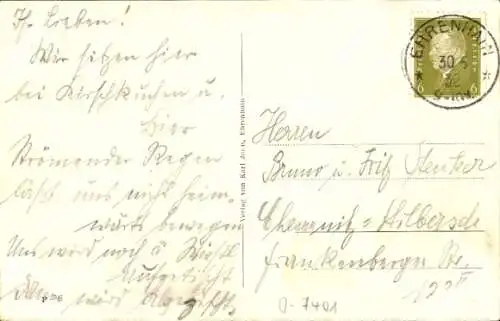 Ihr Lieben!
Wir sitzen hier
bei Kirschkuchen u.
Bier
Strömender Regen
lässt uns nicht heim-
wärts bewegen
Uns wird noch a
Aufgetischt
wird
Verlag von Karl Ehrenhain
EHRENHAIN
30.5
6 6
Herren
Bruno u. Fritz
Chemnitz-Hilbersd.
Frankenberger Str.
O-7401